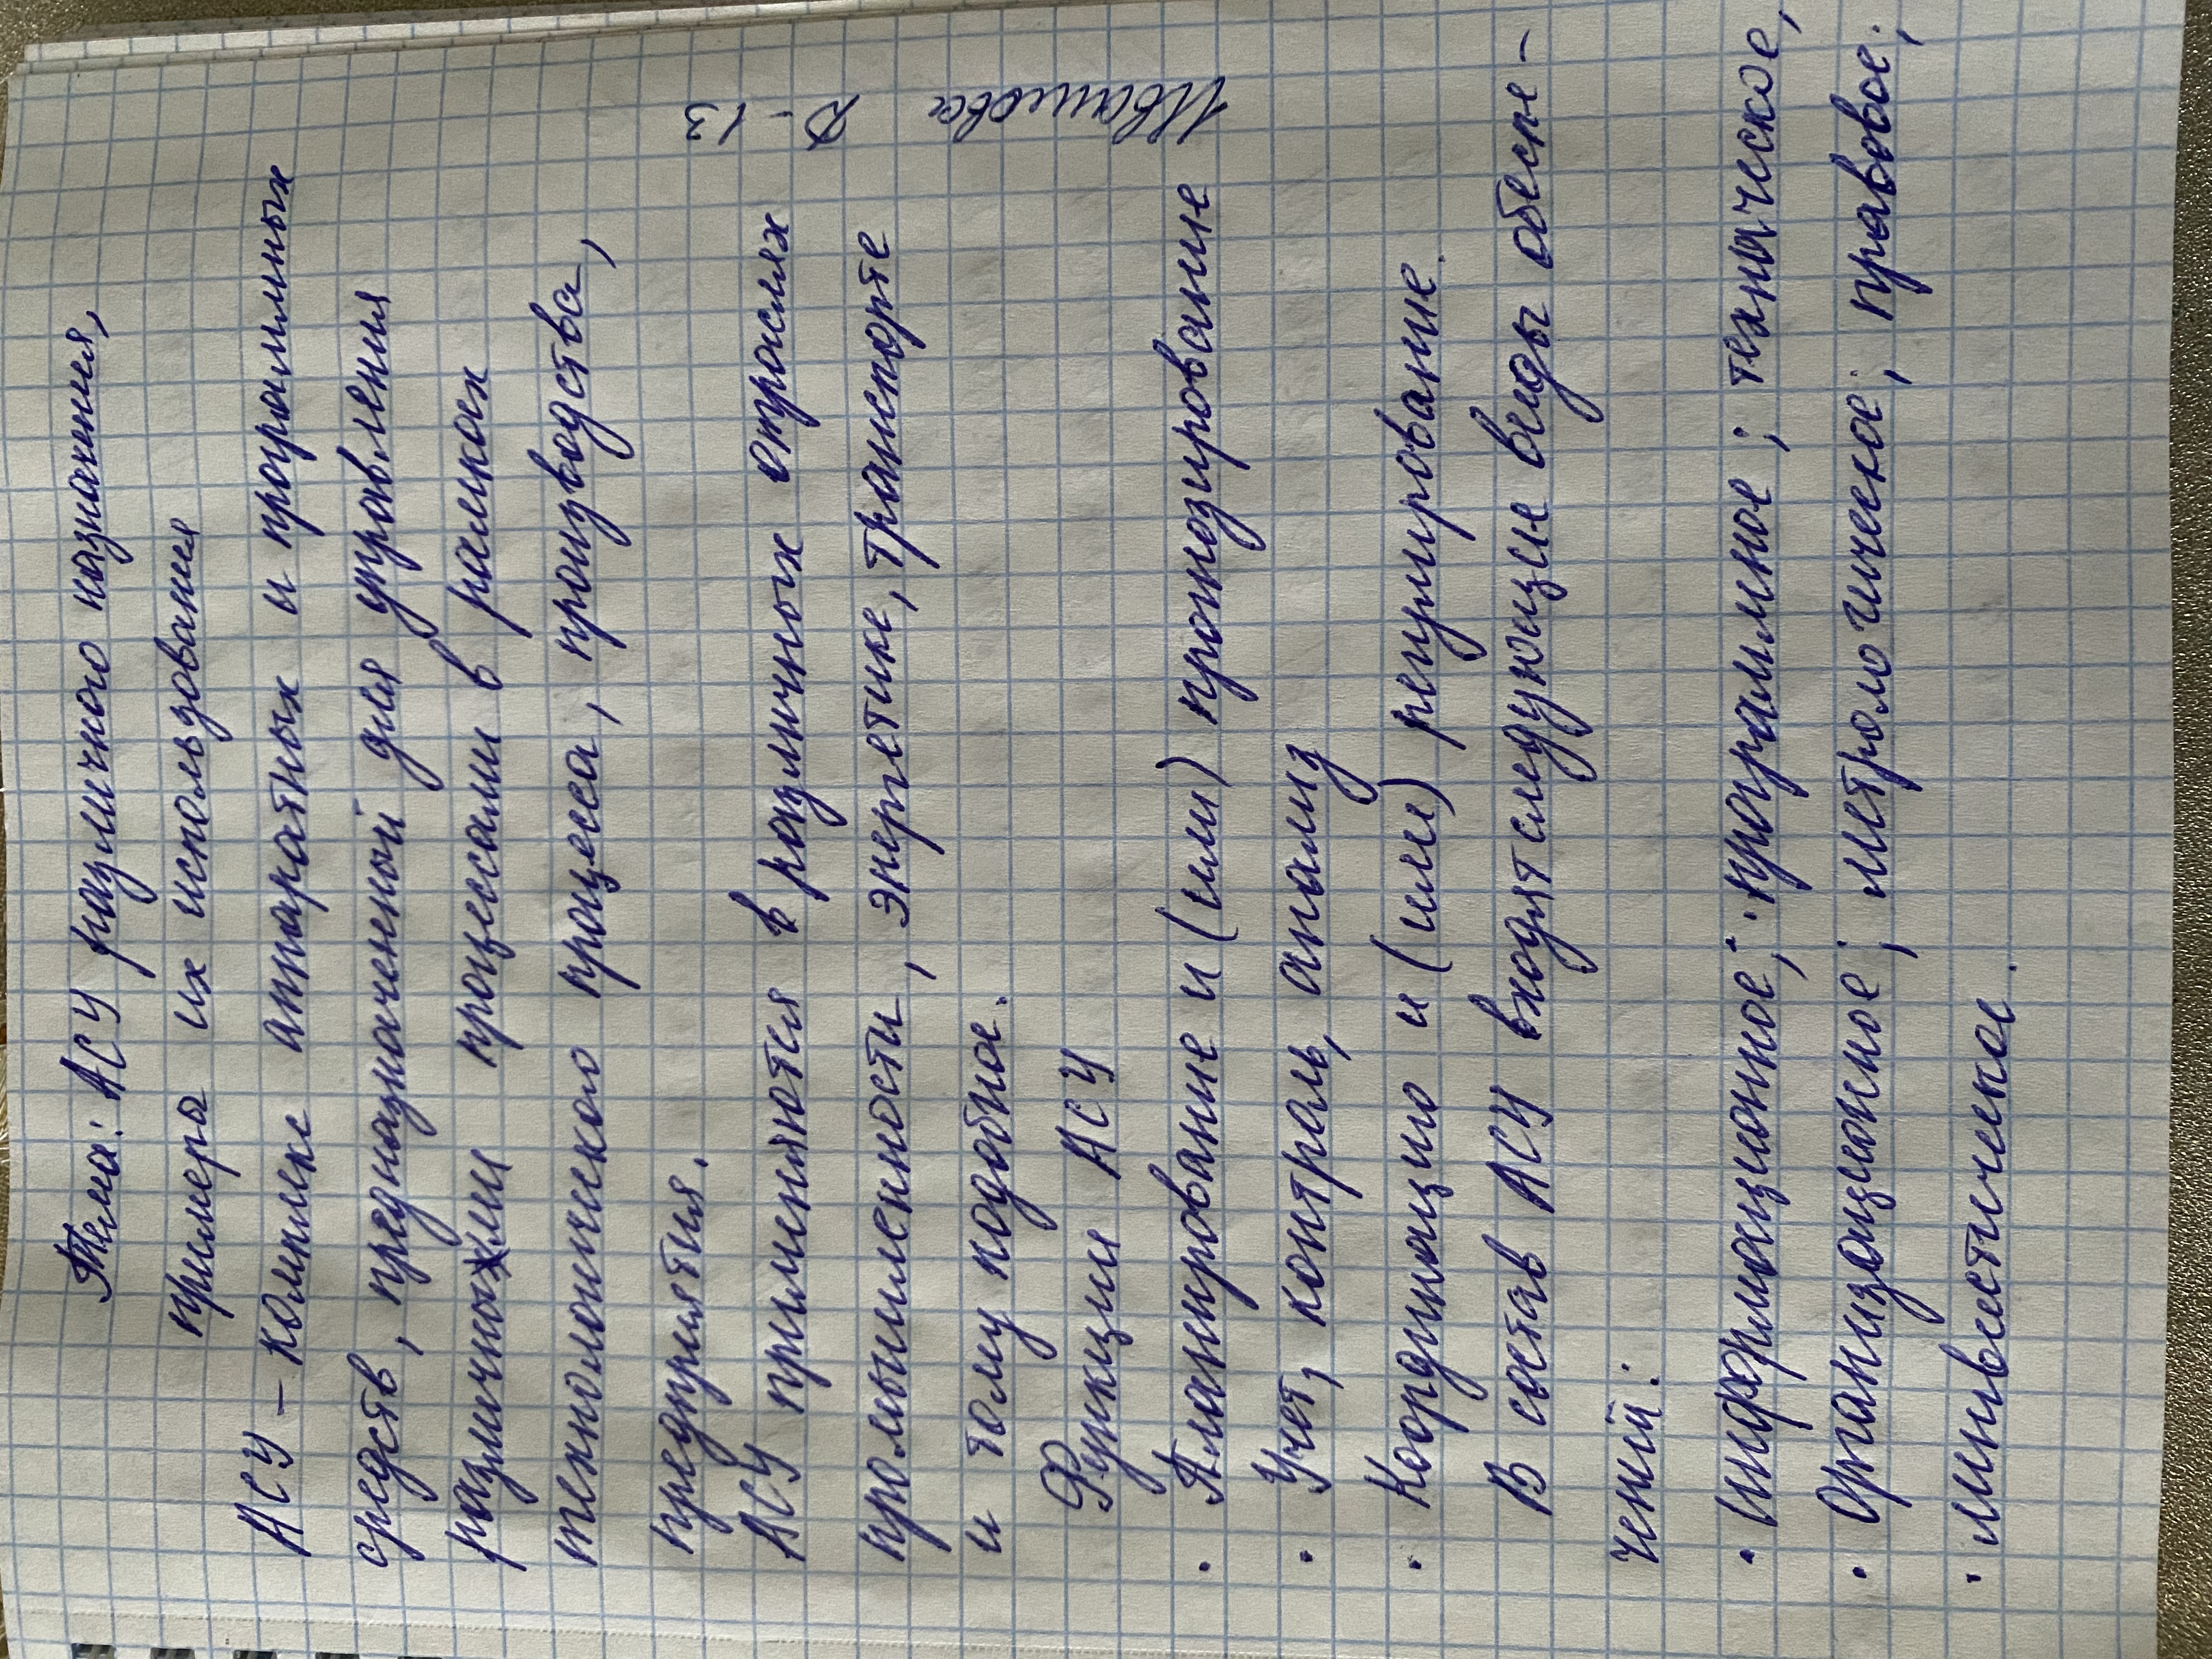 Тема: АСУ различного назначения,
примеры их использования
АСУ – комплекс аппаратных и програмных
средств, предназначенный для управления
различными процессами в рамках
технологического процесса, производства,
предприятия.
АСУ применяются в различных отраслях
промышленности, энергетике, транспорте
и тому подобное.
Функции АСУ
• Планирование и (или) прогнозирование
• Учет, контроль, анализ
• Координацию и (или) регулирование.
В состав АСУ входят следующие виды обеспе-
чений:
• информационное; программное; техническое;
• организационное; метрологическое; правовое;
• лингвестическое.
Иванова
Д-13